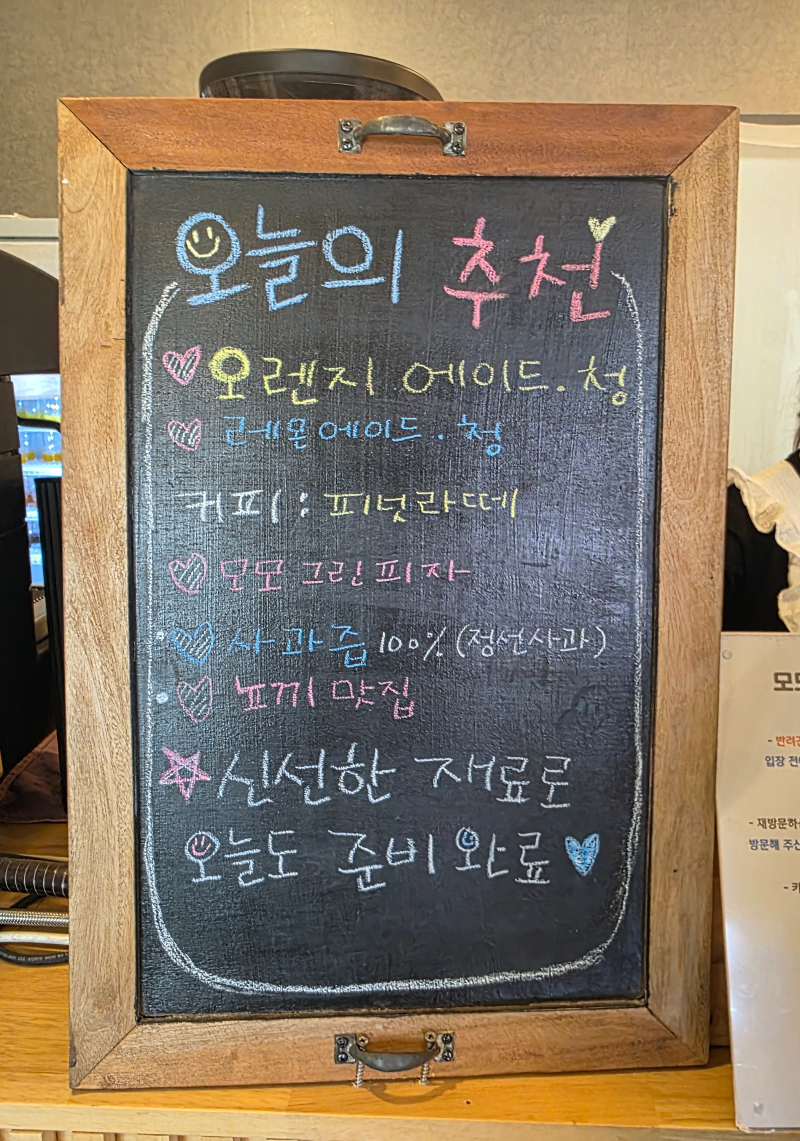 오늘의 추천
오렌지 에이드.청
레몬에이드.청
커피:피넛라떼
모모 그린 피자
사과즙 100%(정선사과)
뇨끼 맛집
신선한 재료로
오늘도 준비 완료
모두
- 반려견
입장 전
- 재방문하
방문해 주신